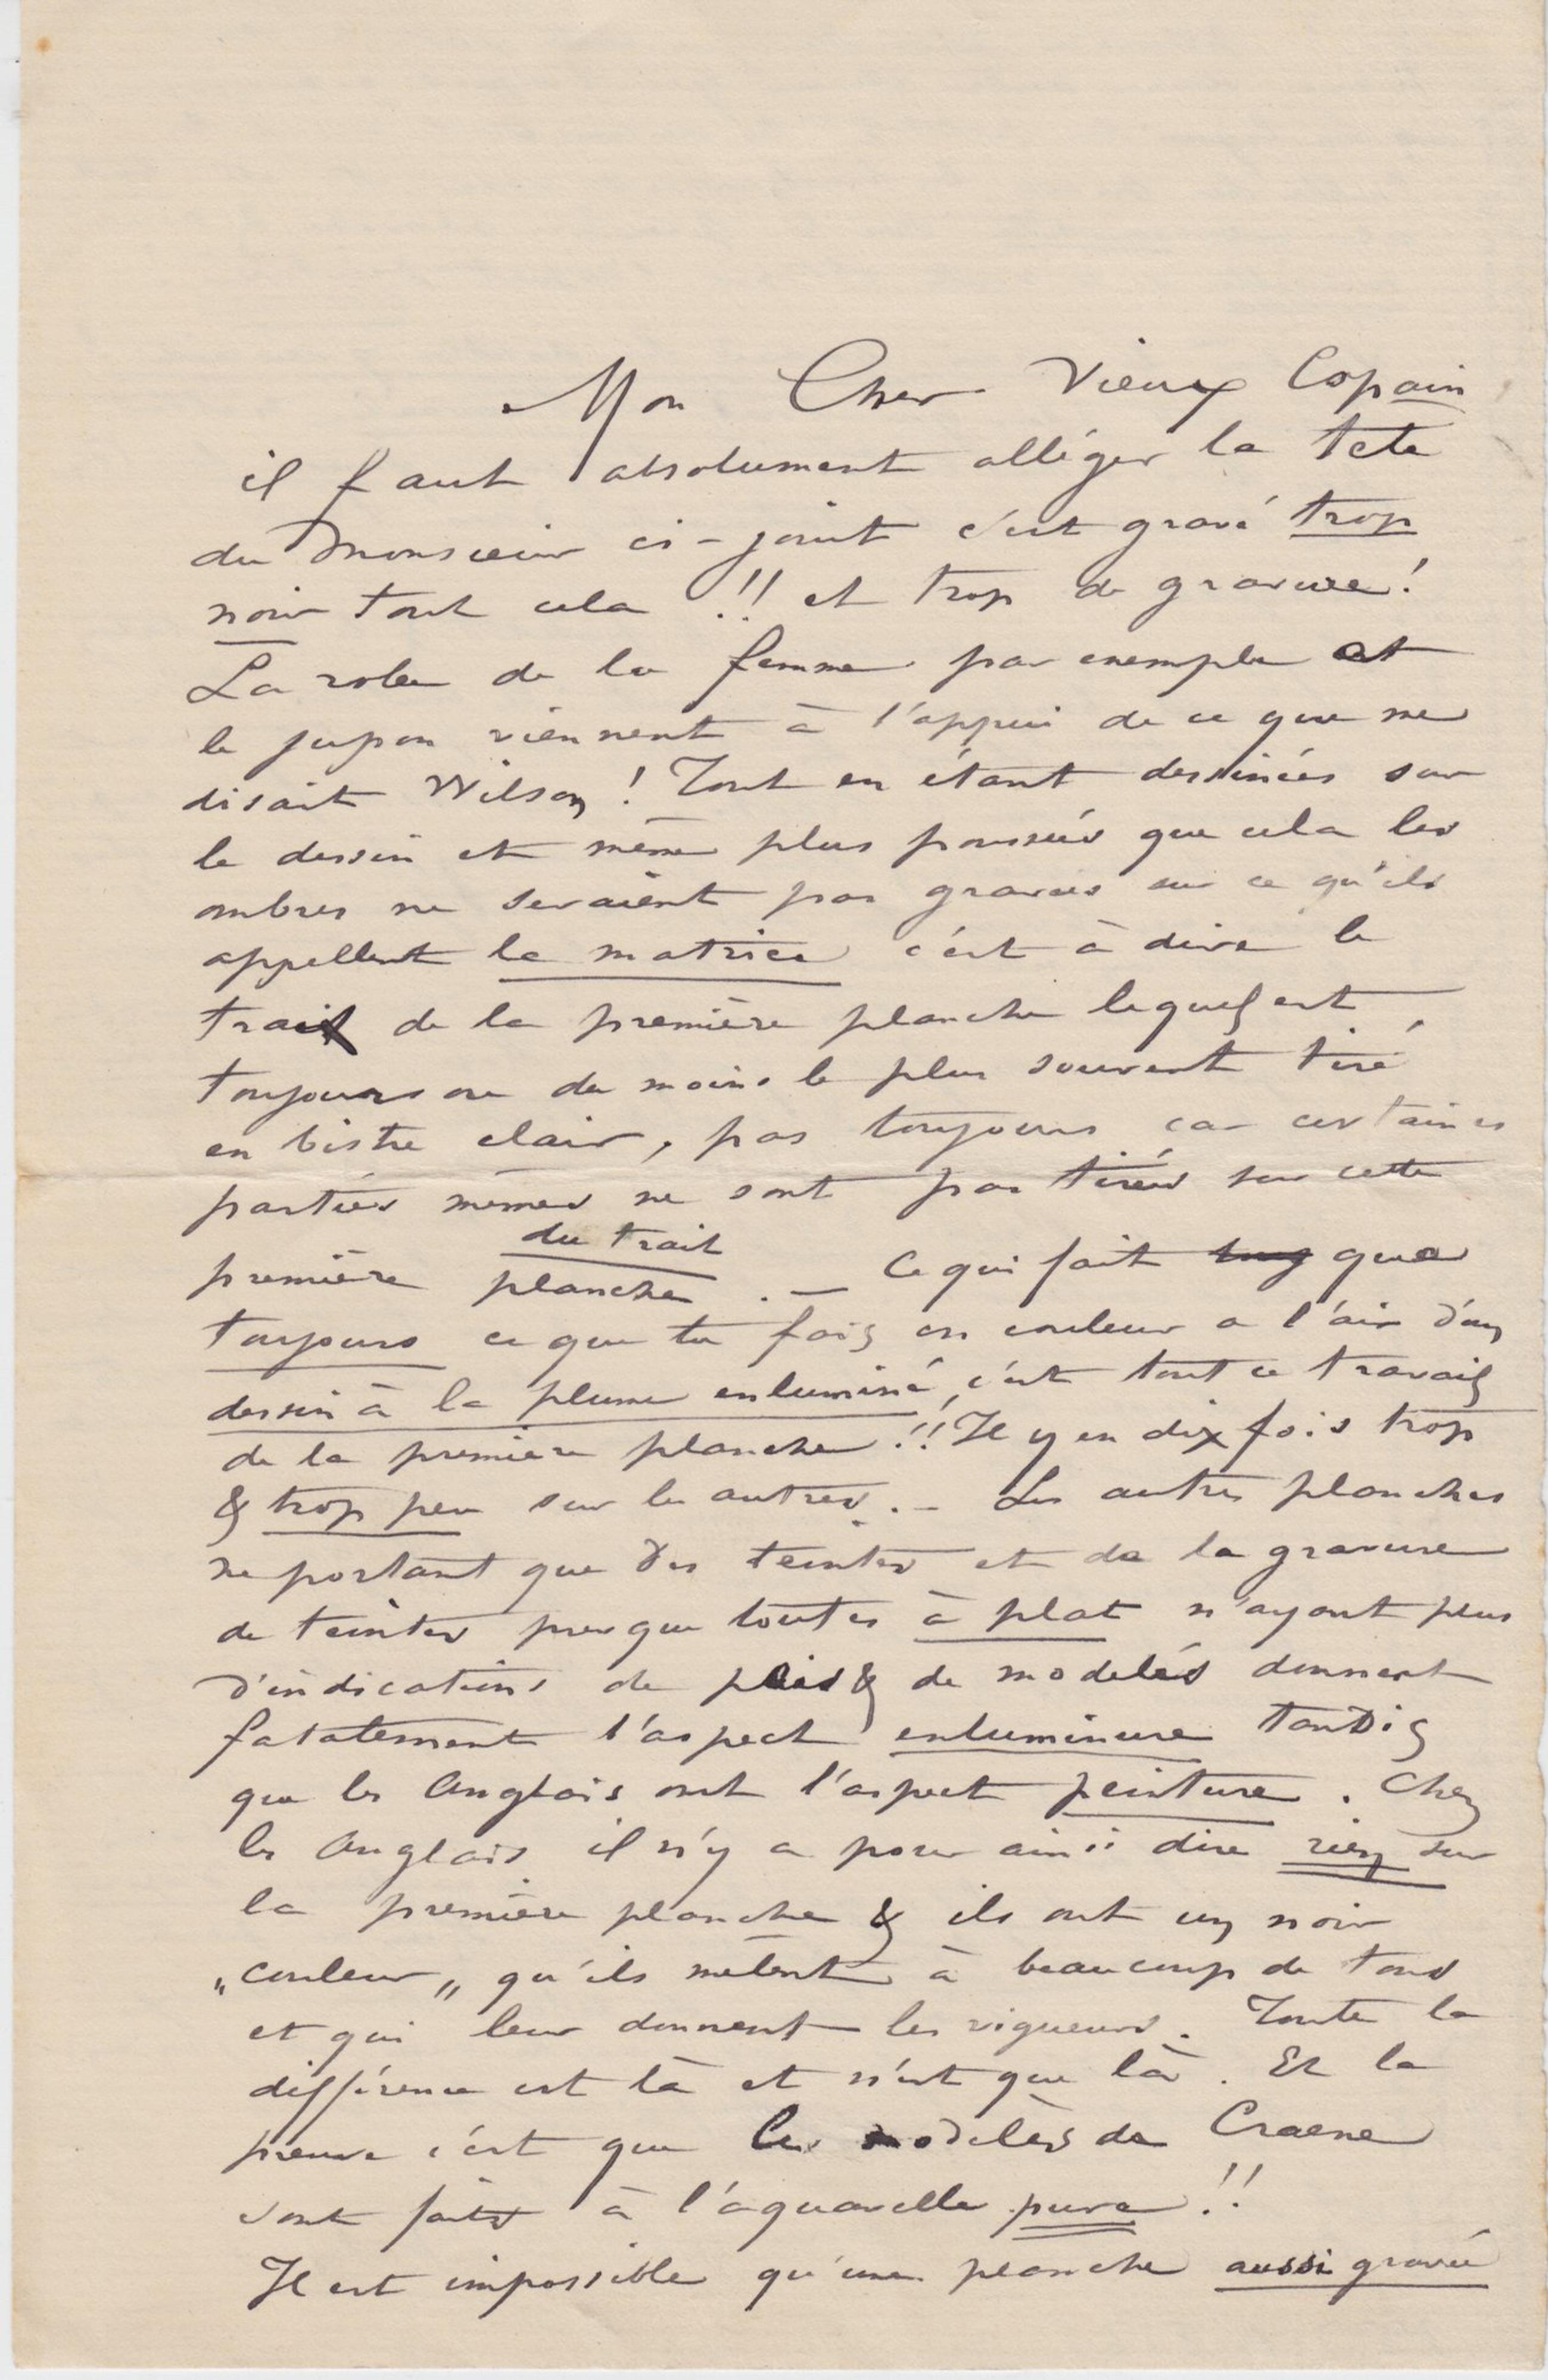 Mon Cher Vieux Copain
il faut absolument alléger la tete
du Monsieur ci-joint c'est gravé trop
noir tout cela !! et trop de gravure!
La robe de la femme par exemple et
le jupon viennent à l'appui de ce que me
disait Wilson! Tout en étant dessinées sur
le dessin et même plus poussés que cela les
ombres ne seraient pas gravées sur ce qu'ils
appellent la matrice c'est à dire le
trait de la première planche lequel est
toujours ou du moins le plus souvent tiré
en bistre clair, pas toujours car certaines
parties mêmes ne sont pas tirées sur cette
du trait
première planche. — Ce qui fait que
toujours ce que tu fais en couleur a l'air d'un
dessin à la plume enluminé, c'est tout ce travail
de la première planche!! Il y en dix fois trop
& trop peu sur les autres. — Les autres planches
ne portant que des teintes et de la gravure
de teintes presque toutes à plat n'ayant plus
d'indications de plis & de modelés donnent
fatalement l'aspect enluminure tandis
que les Anglais ont l'aspect peinture. Chez
les Anglais il n'y a pour ainsi dire rien sur
la première planche & ils ont un noir
„couleur„ qu'ils mêlent à beaucoup de tons
et qui leur donnent les vigueurs. Toute la
différence est là et n'est que là. Et la
preuve c'est que les modèles de Craene
sont faits à l'aquarelle pure!!
Il est impossible qu'une planche aussi gravée